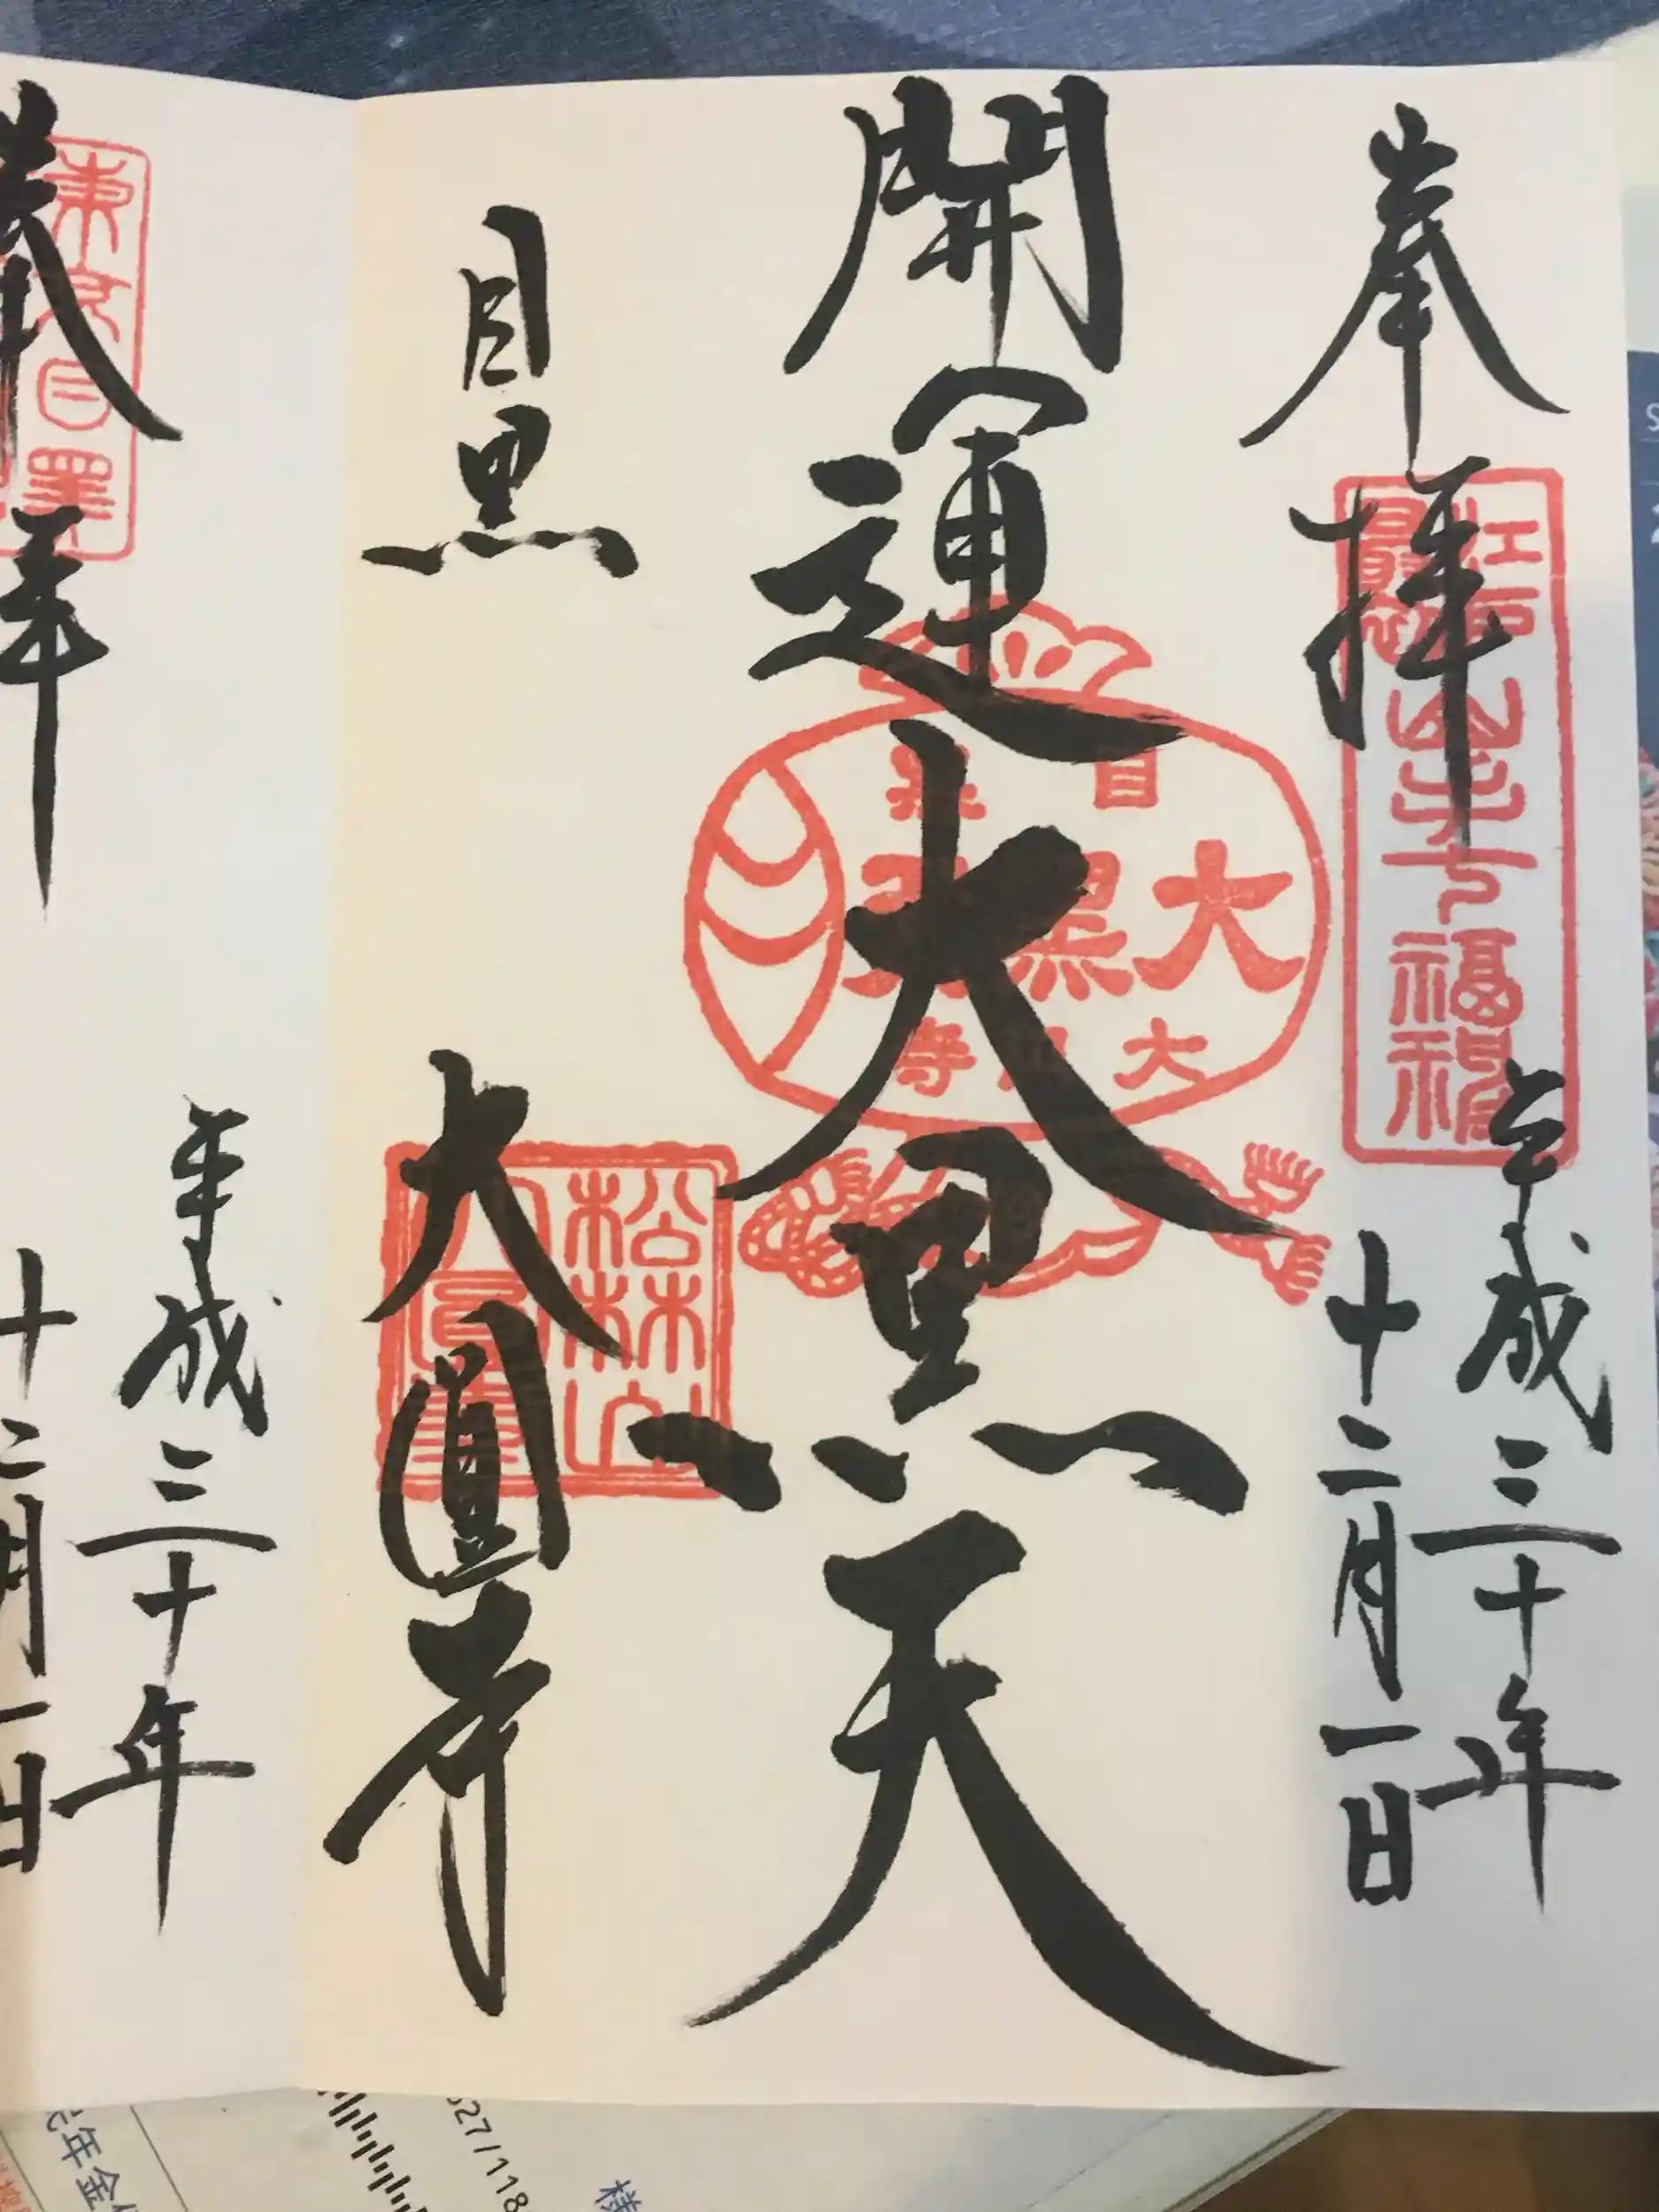 奉拝
平成三十年
十二月一日
開運大黒天
目黒
大圓寺
江戸最初山手七福神
目黒
大黒天
大円寺
松林山
大圓寺
奉拝
平成三十年
十二月一日
年金
様